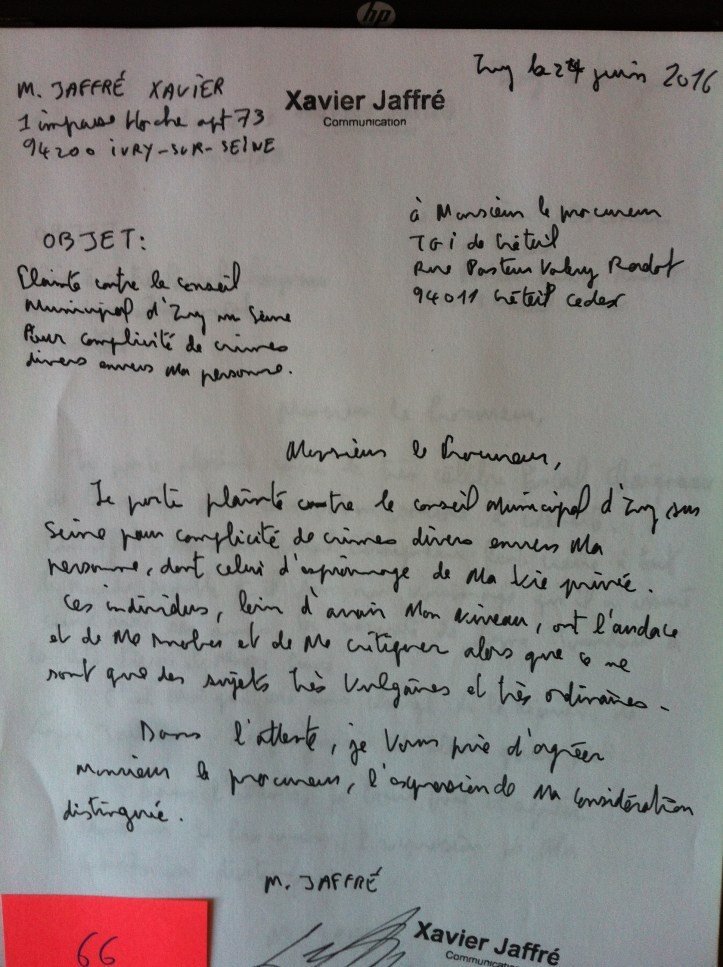 hp
Ivry le 24 juin 2016
M. JAFFRÉ XAVIER
1 impasse Hoche apt 73
94200 IVRY-SUR-SEINE
Xavier Jaffré
Communication
à Monsieur le procureur
TGI de Créteil
Rue Pasteur Valery Radot
94011 Créteil cedex
OBJET:
Plainte contre le conseil
Municipal d'Ivry sur Seine
Pour complicité de crimes
divers envers Ma personne.
Monsieur le Procureur,
Je porte plainte contre le conseil Municipal d'Ivry sur
Seine pour complicité de crimes divers envers Ma
personne, dont celui d'espionnage de Ma vie privée.
Ces individus, loin d'avoir Mon niveau, ont l'audace
et de Me snober et de Me critiquer alors que ce ne
sont que des sujets très Vulgaires et très ordinaires.
Dans l'attente, je Vous prie d'agréer
Monsieur le procureur, l'expression de Ma considération
distinguée.
M. JAFFRÉ
Xavier Jaffré
Communication
66